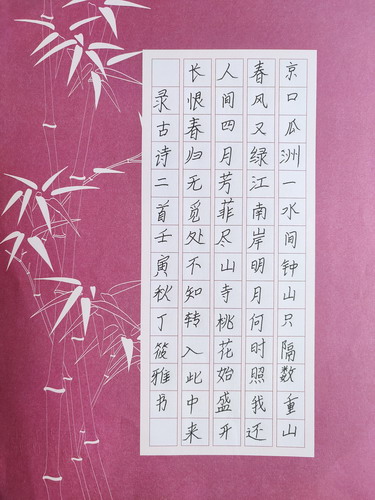 京口瓜洲一水间钟山只隔数重山
春风又绿江南岸明月何时照我还
人间四月芳菲尽山寺桃花始盛开
长恨春归无觅处不知转入此中来
录古诗二首壬寅秋丁筱雅书